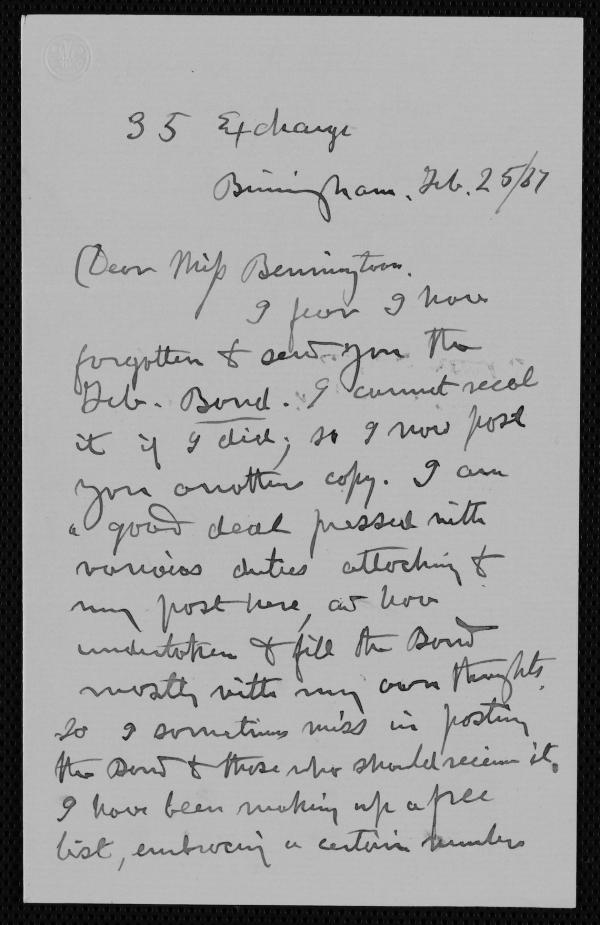 35 Exchange
Birmingham. Feb. 25/87
Dear Miss Bennington.
I fear I have
forgotten to send you the
Feb. Bond. I cannot recal
it if I did; so I now post
you another copy. I am
a good deal pressed with
various duties attaching to
my post here, and have
undertaken to fill the Bond
mostly with my own thoughts.
So I sometimes miss in posting
the Bond to those who should receive it.
I have been making up a free
list, embracing a certain number